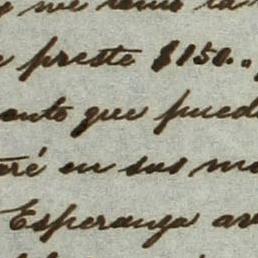 y me
preste $150.,
ento que pued
ré en sus m
Esperanza